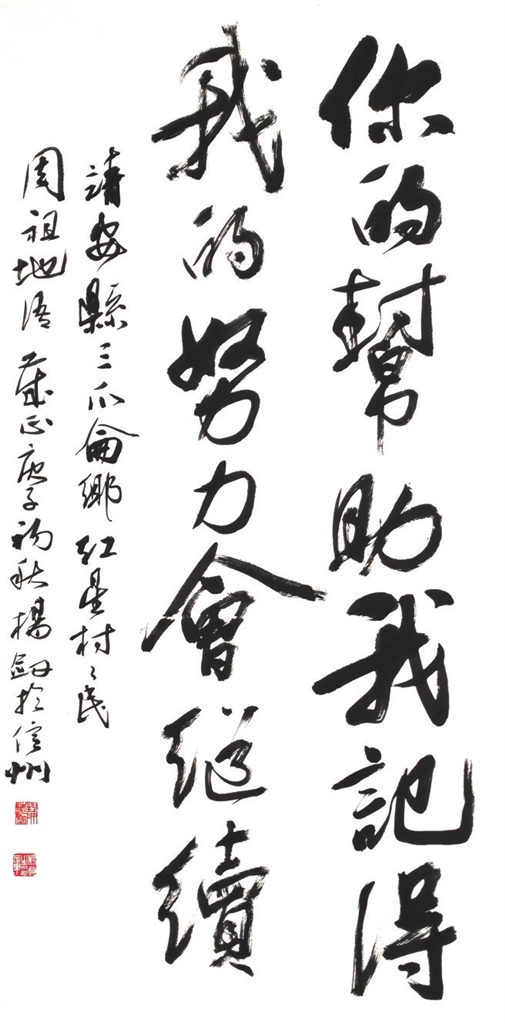 你的幫助我記得
我的努力會继續
靖安縣三爪侖鄉红星村〻民
周祖地语 歲在庚子初秋楊劍於信州